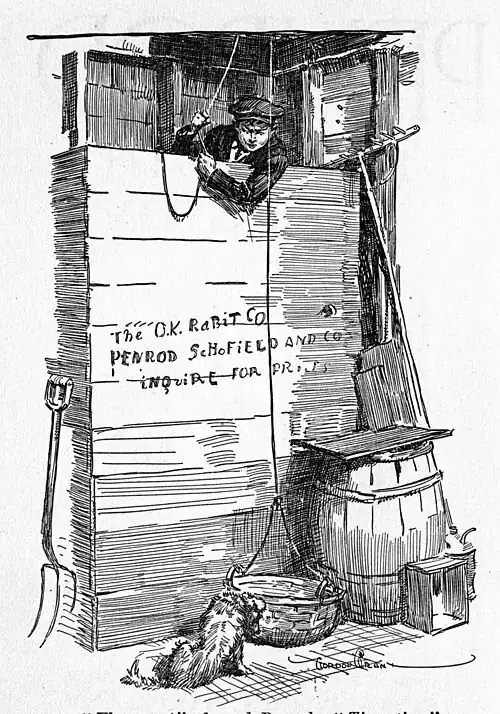 The O.K. RaBiT CO
PENROD ScHOFiELD AND CO
iNQuiRE FOR
GORDON GRANT